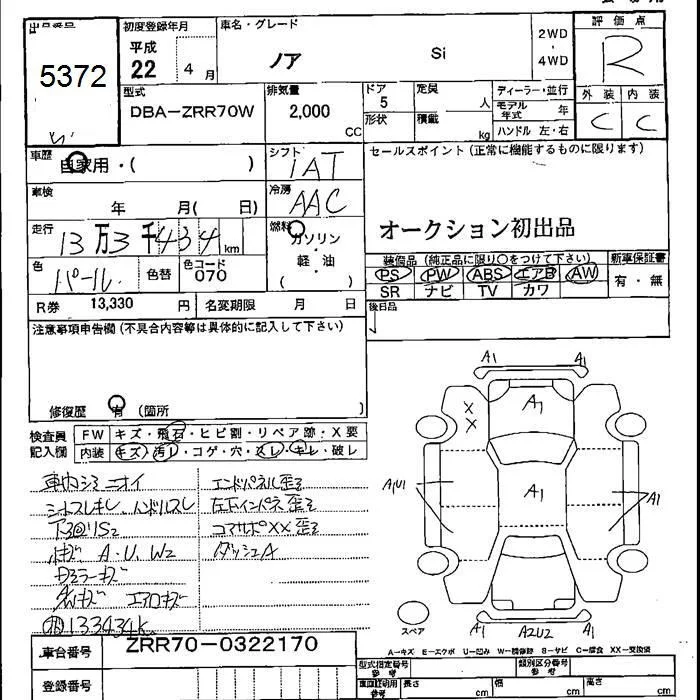 出品番号
5372
初度登録年月
平成
22 4 月
車名・グレード
ノア Si
2WD
・
4WD
評価点
R
外装 内装
C C
型式
DBA-ZRR70W
排気量
2,000
CC
ドア
5
形状
定員
人
積載
kg
ディーラー・並行
モデル年式 年
ハンドル 左・右
車歴
自家用・( )
シフト
IAT
セールスポイント(正常に機能するものに限ります)
オークション初出品
車検
年 月( 日)
冷房
AAC
走行
13万3千434km
燃料
ガソリン
・
軽・油
色
パール
色替
色コード
070
装備品(純正品に限り○をつけて下さい)
PS PW ABS エアB AW
SR ナビ TV カワ
新車保証書
有・無
R券 13,330 円
名変期限 月 日
後日品
注意事項申告欄(不具合内容等は具体的に記入して下さい)
修復歴 有 (箇所 )
検査員記入欄
FW キズ・飛石・ヒビ割・リペア跡・X要
内装 キズ・汚れ・コゲ・穴・スレ・キレ・破レ
車内シミ ニオイ
シートスレキレ ハンドルスレ
キズ A.U.W2
ドアミラーキズ
エアロキズ
133434K
エンドパネル歪ミ
左右インパネ歪ミ
コアサポXX歪ミ
ダッシュA
A1 A1
X
X
A1
A1U1
A1
A1
A1 A2U2 A1
スペア
A-キズ E-エクボ U-凹み W-補修跡 S-サビ C-腐食 XX-交換済
車台番号 ZRR70-0322170
登録番号
型式指定番号
参考
類別区分番号
参考
長さ cm 幅 cm 高さ cm